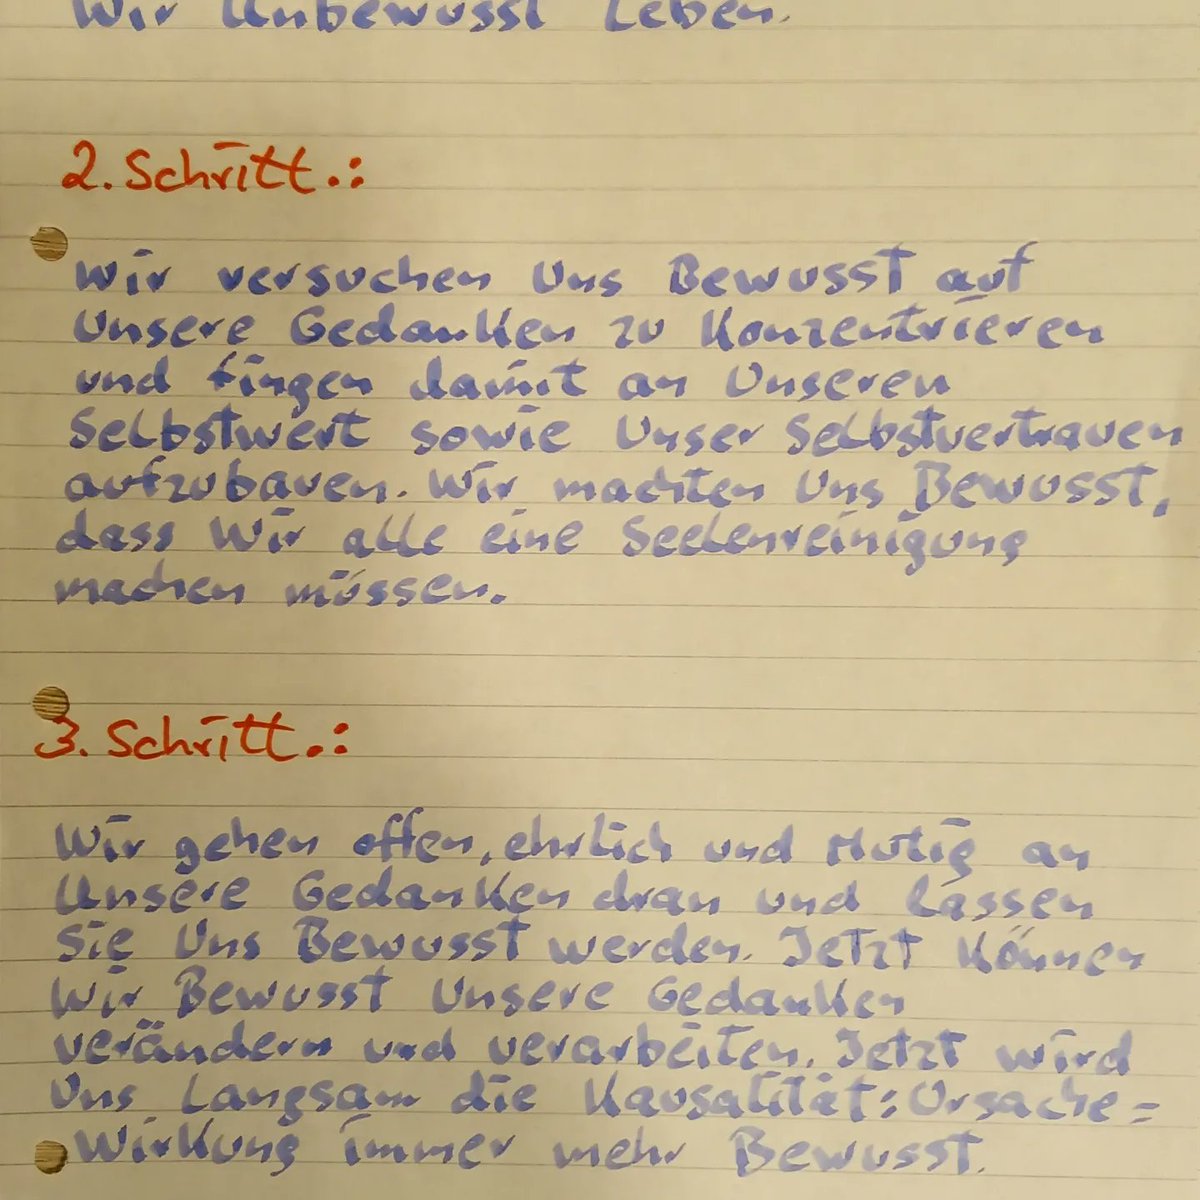 Wir Unbewusst Leben.
2. Schritt.:
Wir versuchen Uns Bewusst auf
Unsere Gedanken zu Konzentrieren
und fingen damit an Unseren
Selbstwert sowie Unser Selbstvertrauen
aufzubauen. Wir machten Uns Bewusst,
dass Wir alle eine Seelenreinigung
machen müssen.
3. Schritt.:
Wir gehen offen, ehrlich und Mutig an
Unsere Gedanken dran und lassen
Sie Uns Bewusst werden. Jetzt Können
Wir Bewusst Unsere Gedanken
verändern und verarbeiten. Jetzt wird
Uns Langsam die Kausalität: Ursache =
Wirkung immer mehr Bewusst.